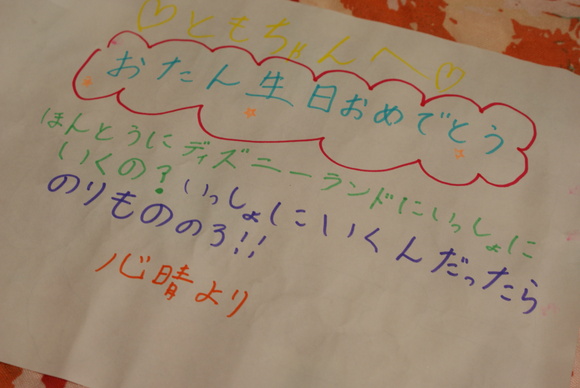 ♡ともちゃんへ♡
おたん生日おめでとう
ほんとうにディズニーランドにいっしょに
いくの？いっしょにいくんだったら
のりもののろ!!
心晴より